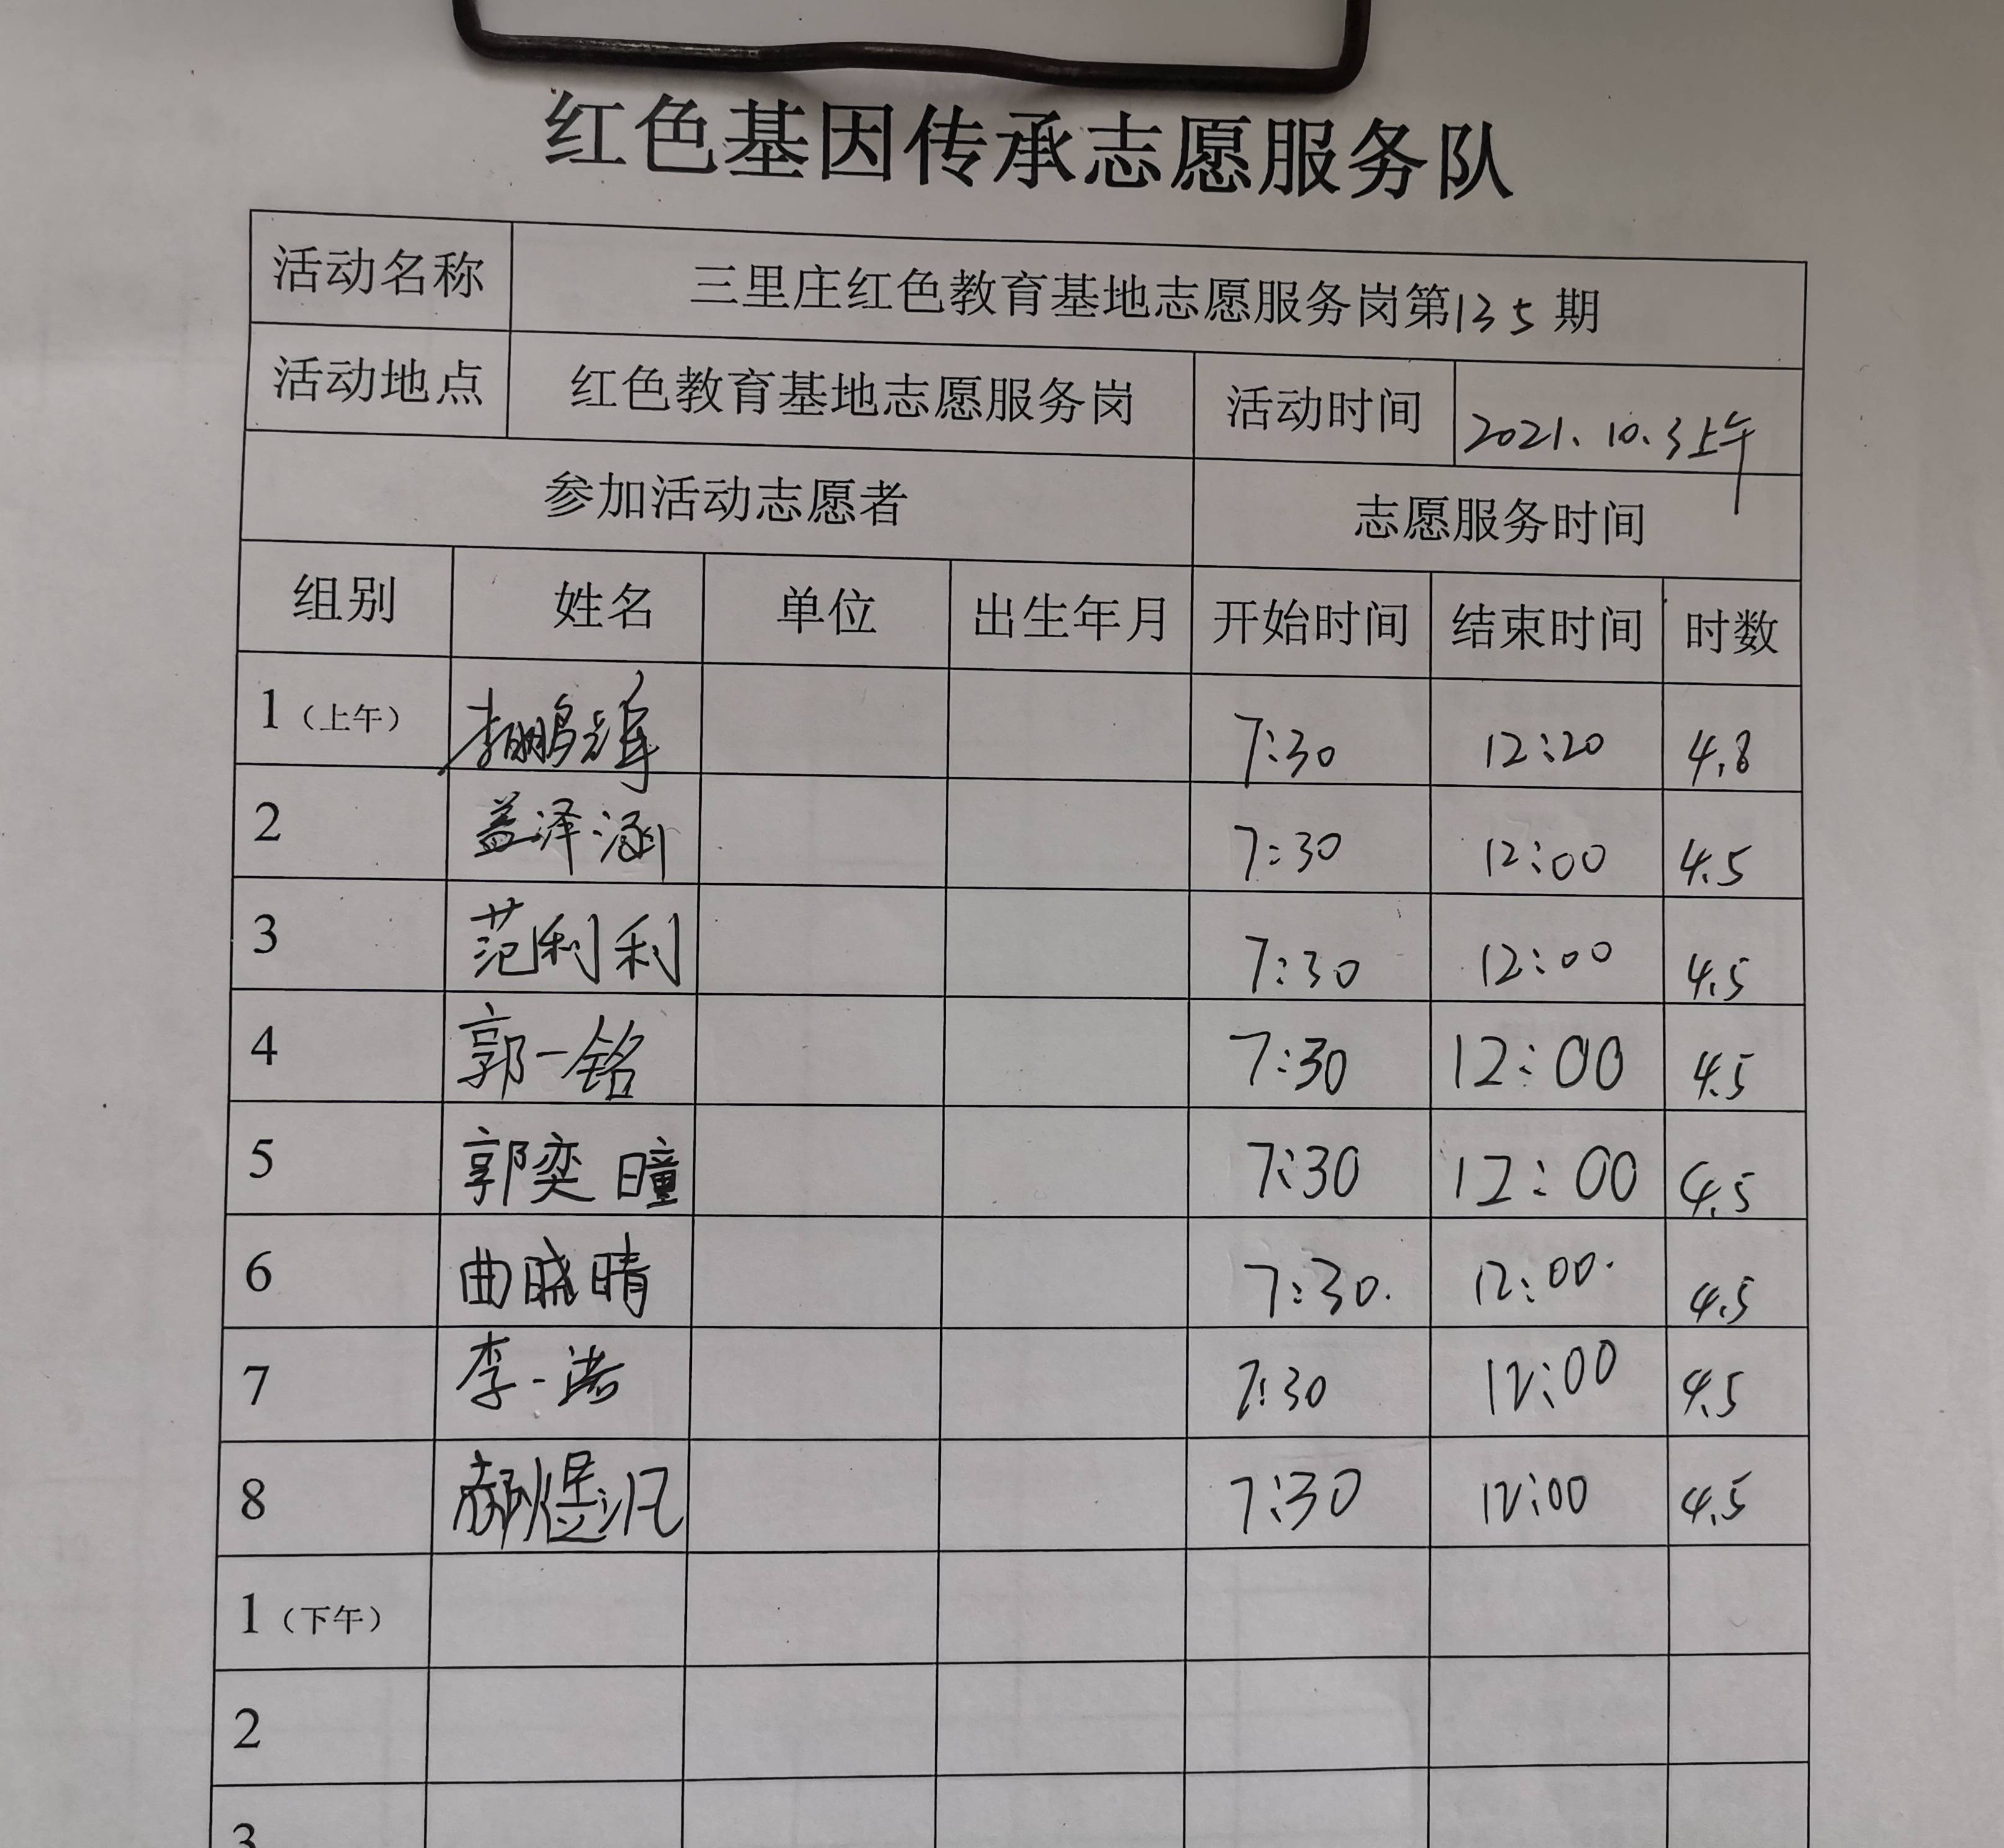 红色基因传承志愿服务队
活动名称 三里庄红色教育基地志愿服务岗第135期
活动地点 红色教育基地志愿服务岗 活动时间 2021.10.3上午
参加活动志愿者 志愿服务时间
组别 姓名 单位 出生年月 开始时间 结束时间 时数
1（上午） 7:30 12:20 4.8
2 益泽涵 7:30 12:00 4.5
3 范利利 7:30 12:00 4.5
4 郭一铭 7:30 12:00 4.5
5 郭奕曈 7:30 12:00 4.5
6 曲晓晴 7:30. 12:00. 4.5
7 李一诺 7:30 12:00 4.5
8 郝煜汎 7:30 12:00 4.5
1（下午）
2
3